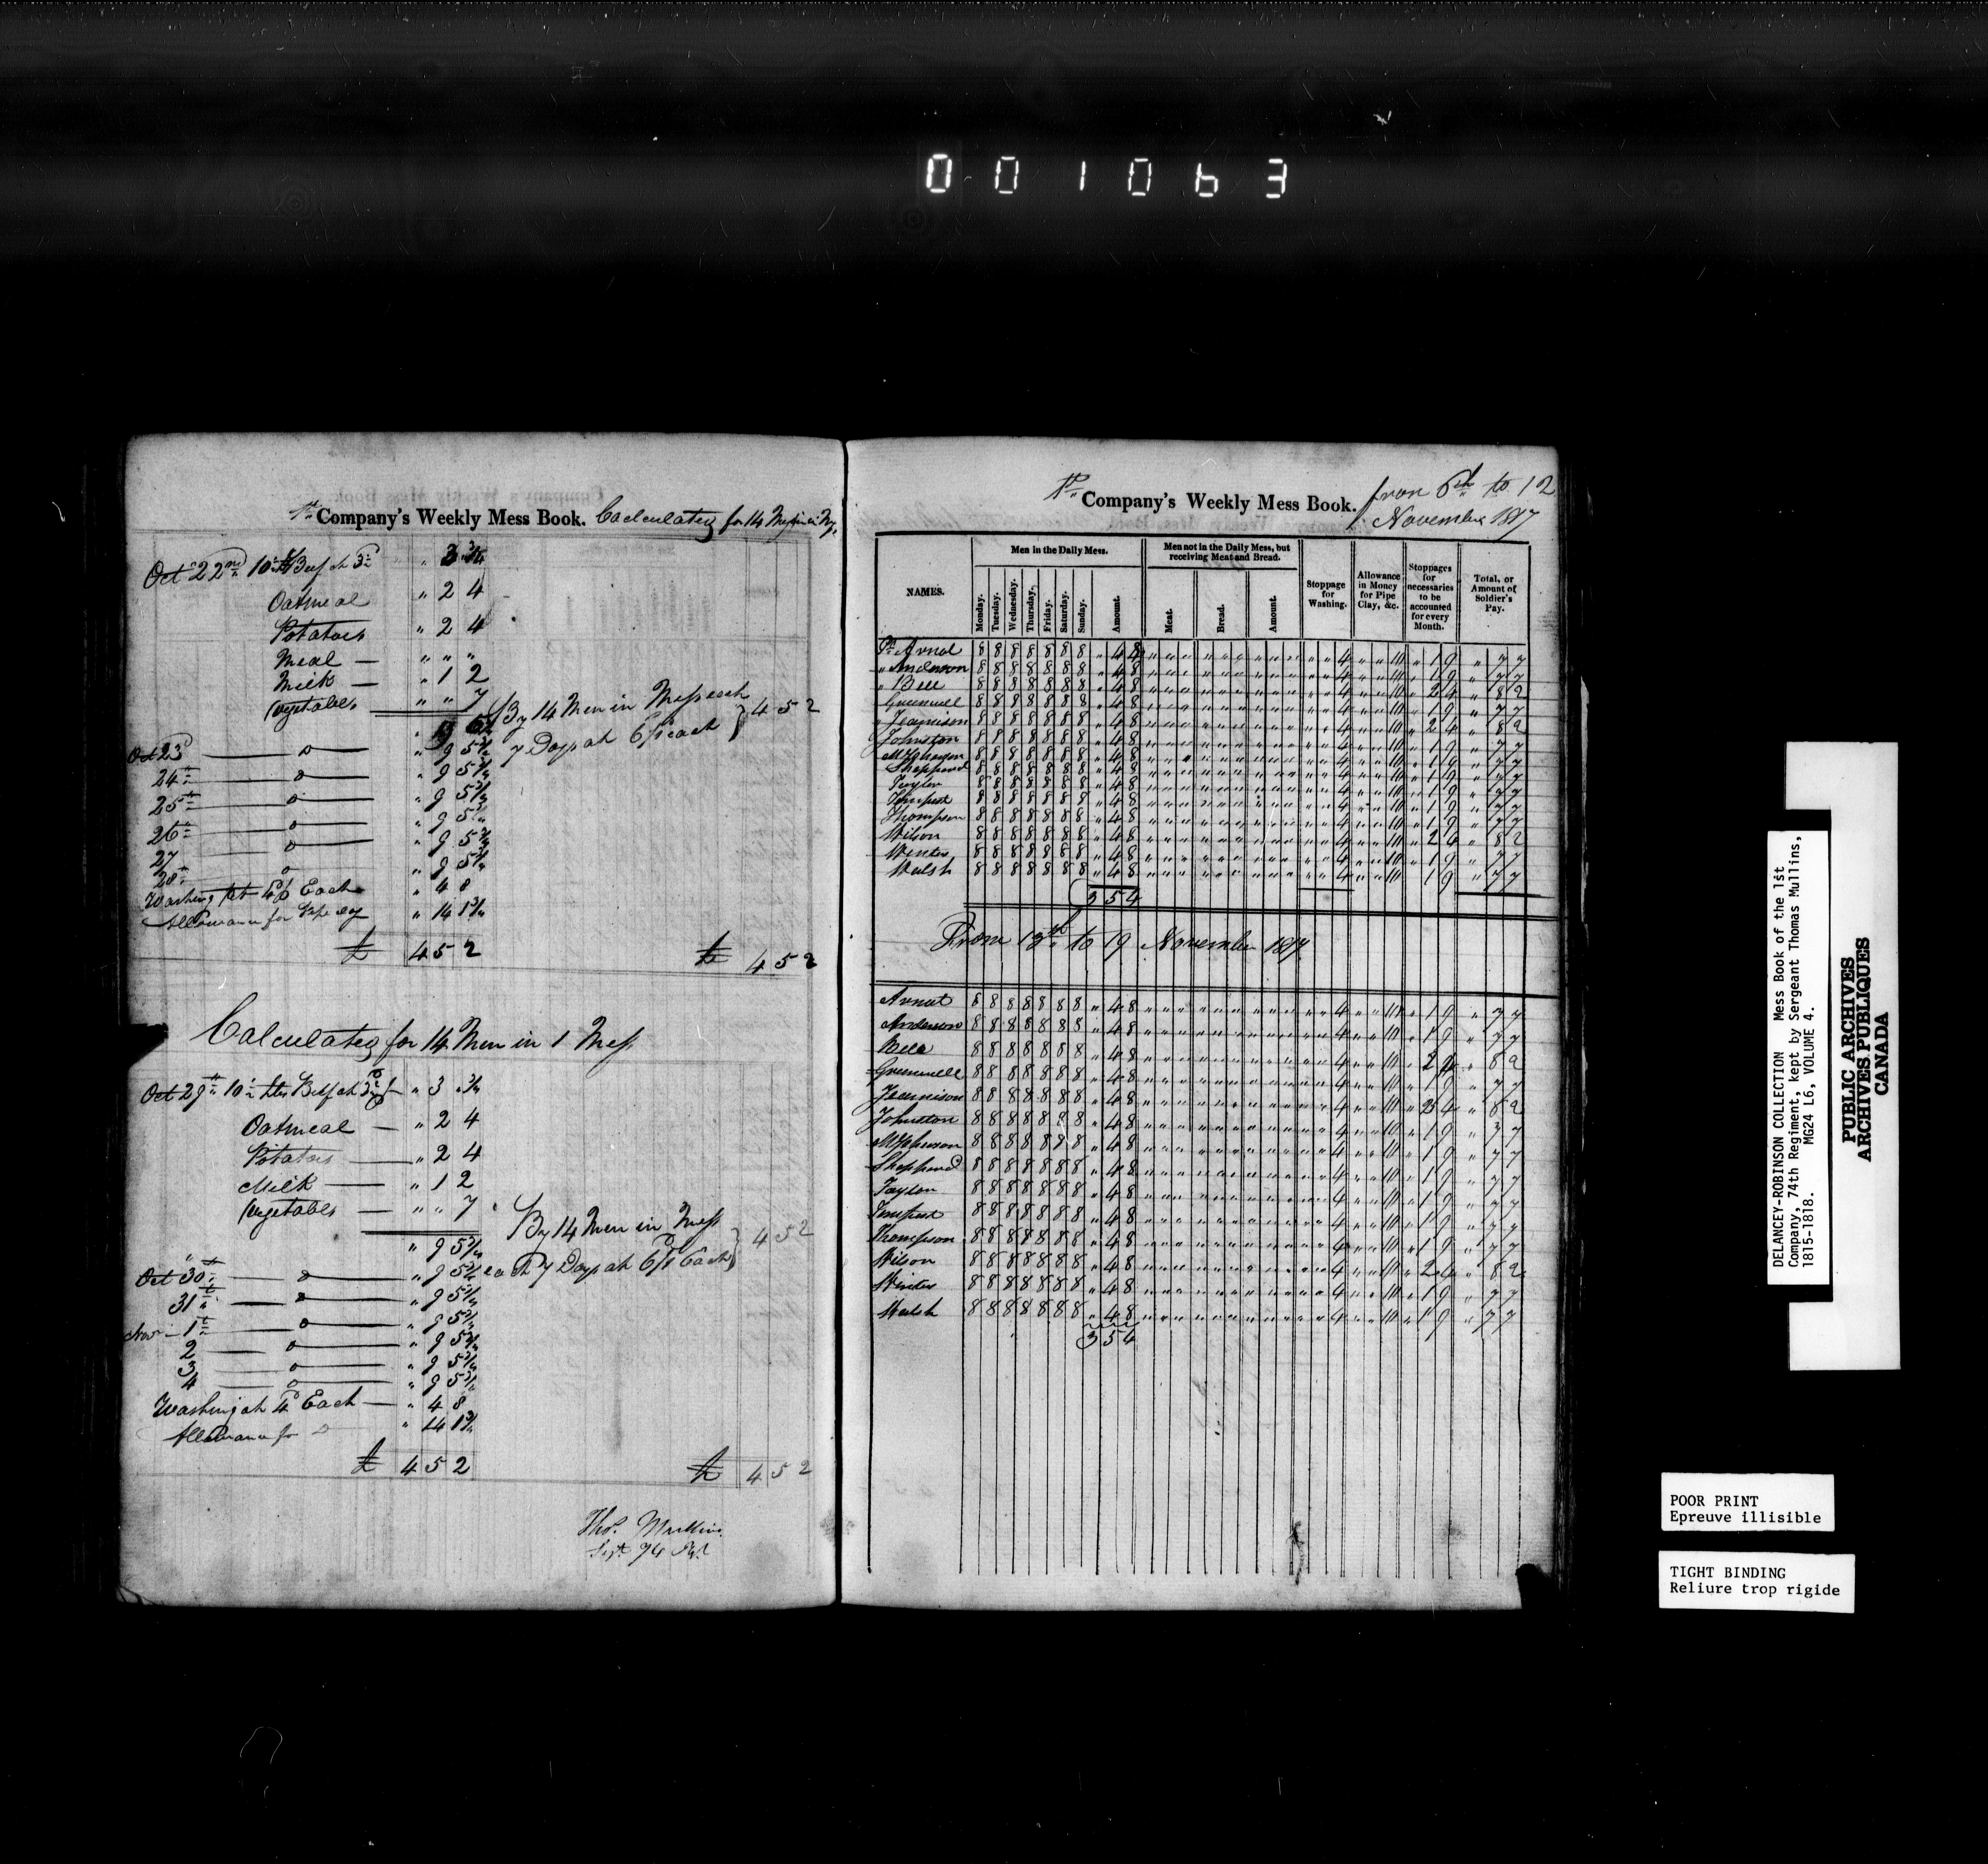 001063
1st Company's Weekly Mess Book. Calculating for 14 Men in
Oct 22nd 10 lbs Beef at 3d " 3 ¾
Oatmeal " 2 4
Potatoes " 2 4
Meal — " " "
Milk — " 1 2
Vegetables " " 7
By 14 Men in Mess each
7 Days at 6d each } 4 5 2
Oct 23 — o — " 9 5¾
24th — o — " 9 5¾
25th — o — " 9 5¾
26th — o — " 9 5¾
27 — o — " 9 5¾
28th — o — " 9 5¾
Washing at 4d Each " 4 8
Allowance for Pipe Clay " 14 1¾
£ 4 5 2 £ 4 5 2
Calculating for 14 Men in 1 Mess
Oct 29th 10 lbs Beef at " 3 ¾
Oatmeal — " 2 4
Potatoes — " 2 4
Milk — " 1 2
Vegetables — " " 7
" 9 5¾
By 14 Men in Mess
each 7 Days at Each } 4 5 2
Oct 30th — o — " 9 5¾
31st — o — " 9 5¾
Nov 1st — o — " 9 5¾
2 — o — " 9 5¾
3 — o — " 9 5¾
4 — o — " 9 5¾
Washing at 4d Each — " 4 8
Allowance for Do " 14 1¾
£ 4 5 2 £ 4 5 2
Thos. Mullins
Sergt. 74 Regt
1st Company's Weekly Mess Book. from 6th to 12
November 1817
NAMES.
Men in the Daily Mess.
Monday. Tuesday. Wednesday. Thursday. Friday. Saturday. Sunday. Amount.
Men not in the Daily Mess, but receiving Meat and Bread.
Meat. Bread. Amount.
Stoppage for Washing.
Allowance in Money for Pipe Clay, &c.
Stoppages for necessaries to be accounted for every Month.
Total, or Amount of Soldier's Pay.
Arnot 8 8 8 8 8 8 8 " 4 8 " " " " " " " " " " " 4 " " 10 " 1 9 " 7 7
" Anderson 8 8 8 8 8 8 8 " 4 8 " " " " " " " " " " " 4 " " 10 " 1 9 " 7 7
" Bell 8 8 8 8 8 8 8 " 4 8 " " " " " " " " " " " 4 " " 10 " 2 4 " 8 2
Greenwell 8 8 8 8 8 8 8 " 4 8 " " " " " " " " " " " 4 " " 10 " 1 9 " 7 7
Jeamison 8 8 8 8 8 8 8 " 4 8 " " " " " " " " " " " 4 " " 10 " 2 4 " 8 2
Johnston 8 8 8 8 8 8 8 " 4 8 " " " " " " " " " " " 4 " " 10 " 1 9 " 7 7
8 8 8 8 8 8 8 " 4 8 " " " " " " " " " " " 4 " " 10 " 1 9 " 7 7
Sheppard 8 8 8 8 8 8 8 " 4 8 " " " " " " " " " " " 4 " " 10 " 1 9 " 7 7
Taylor 8 8 8 8 8 8 8 " 4 8 " " " " " " " " " " " 4 " " 10 " 1 9 " 7 7
Tempest 8 8 8 8 8 8 8 " 4 8 " " " " " " " " " " " 4 " " 10 " 1 9 " 7 7
Thompson 8 8 8 8 8 8 8 " 4 8 " " " " " " " " " " " 4 " " 10 " 1 9 " 7 7
Wilson 8 8 8 8 8 8 8 " 4 8 " " " " " " " " " " " 4 " " 10 " 2 4 " 8 2
Winter 8 8 8 8 8 8 8 " 4 8 " " " " " " " " " " " 4 " " 10 " 1 9 " 7 7
Walsh 8 8 8 8 8 8 8 " 4 8 " " " " " " " " " " " 4 " " 10 1 9 " 7 7
3 5 4
From 13th to 19 November 1817
Arnot 8 8 8 8 8 8 8 " 4 8 " " " " " " " " " " " 4 " " 10 " 1 9 " 7 7
Anderson 8 8 8 8 8 8 8 " 4 8 " " " " " " " " " " " 4 " " 10 " 1 9 " 7 7
Bell 8 8 8 8 8 8 8 " 4 8 " " " " " " " " " " " 4 " " 10 " 2 4 " 8 2
Greenwell 8 8 8 8 8 8 8 " 4 8 " " " " " " " " " " " 4 " " 10 " 1 9 " 7 7
Jeamison 8 8 8 8 8 8 8 " 4 8 " " " " " " " " " " " 4 " " 10 " 2 4 " 8 2
Johnston 8 8 8 8 8 8 8 " 4 8 " " " " " " " " " " " 4 " " 10 " 1 9 " 7 7
8 8 8 8 8 8 8 " 4 8 " " " " " " " " " " " 4 " " 10 " 1 9 " 7 7
Sheppard 8 8 8 8 8 8 8 " 4 8 " " " " " " " " " " " 4 " " 10 " 1 9 " 7 7
Taylor 8 8 8 8 8 8 8 " 4 8 " " " " " " " " " " " 4 " " 10 " 1 9 " 7 7
Tempest 8 8 8 8 8 8 8 " 4 8 " " " " " " " " " " " 4 " " 10 " 1 9 " 7 7
Thompson 8 8 8 8 8 8 8 " 4 8 " " " " " " " " " " " 4 " " 10 " 1 9 " 7 7
Wilson 8 8 8 8 8 8 8 " 4 8 " " " " " " " " " " " 4 " " 10 " 2 4 " 8 2
Winter 8 8 8 8 8 8 8 " 4 8 " " " " " " " " " " " 4 " " 10 " 1 9 " 7 7
Walsh 8 8 8 8 8 8 8 " 4 8 " " " " " " " " " " " 4 " " 10 " 1 9 " 7 7
3 5 4
DELANCEY-ROBINSON COLLECTION Mess Book of the 1st
Company, 74th Regiment, kept by Sergeant Thomas Mullins,
1815-1818. MG24 L6, VOLUME 4.
PUBLIC ARCHIVES
ARCHIVES PUBLIQUES
CANADA
POOR PRINT
Epreuve illisible
TIGHT BINDING
Reliure trop rigide